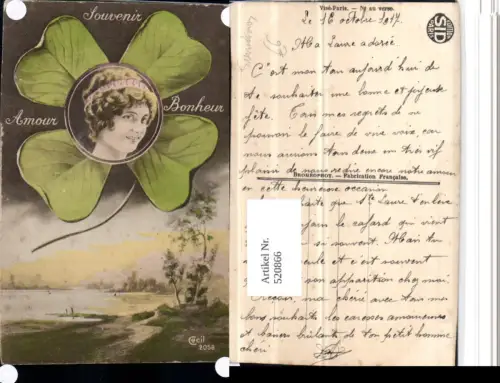 Souvenir
Amour
Bonheur
Cecil
2058
Visé-Paris. - No au verso.
SID
Le 16 octobre 1917.
Ma Laure adorée
C'est mon tour aujourd'hui de
te souhaiter une bonne et joyeuse
fête. Tous mes regrets de ne
pouvoir le faire de vive voix, car
nous aurions tous deux un très vif
plaisir de nous redire encore notre amour
BROMUROPHOT. - Fabrication Française.
en cette heureuse occasion
que Ste Laure t'enlève
le cafard qui vient
si souvent. Mais tu
seule et c'est souvent
son apparition chez moi
ma chérie avec tous mes
bons souhaits les caresses amoureuses
et baisers brûlants de ton petit homme
chéri
Artikel Nr.
520866